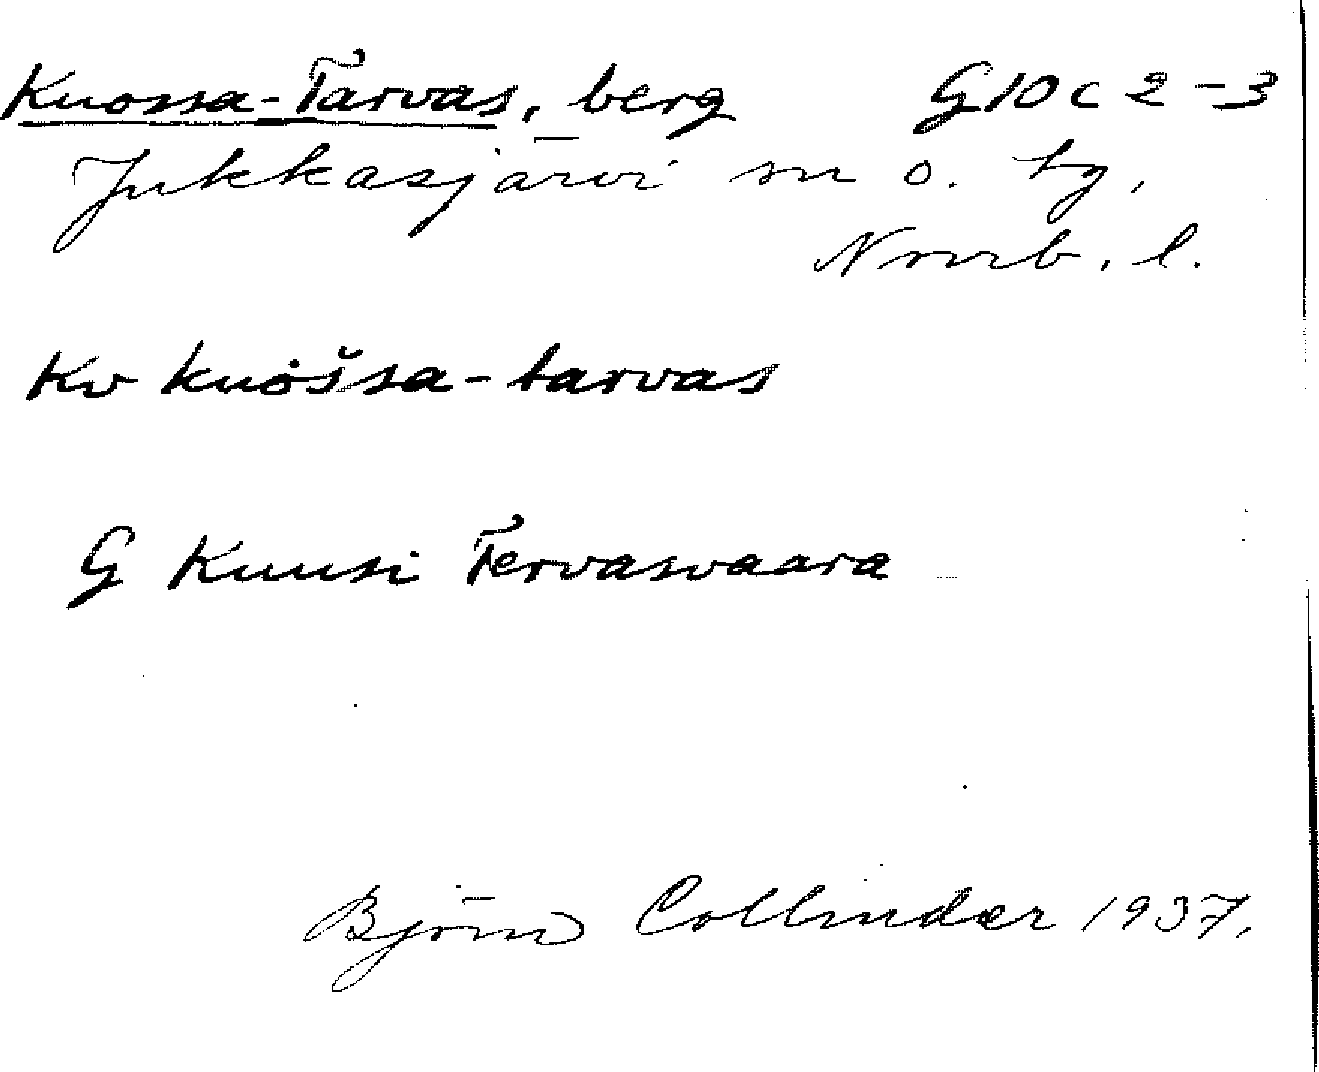 Kuossa-Tarvas, berg G10c 2-3
Jukkasjärvi sn o. tg,
Norrb. l.
Kv kuȯšsa-tarvas
G Kuusi Tervasvaara
Björn Collinder 1937.